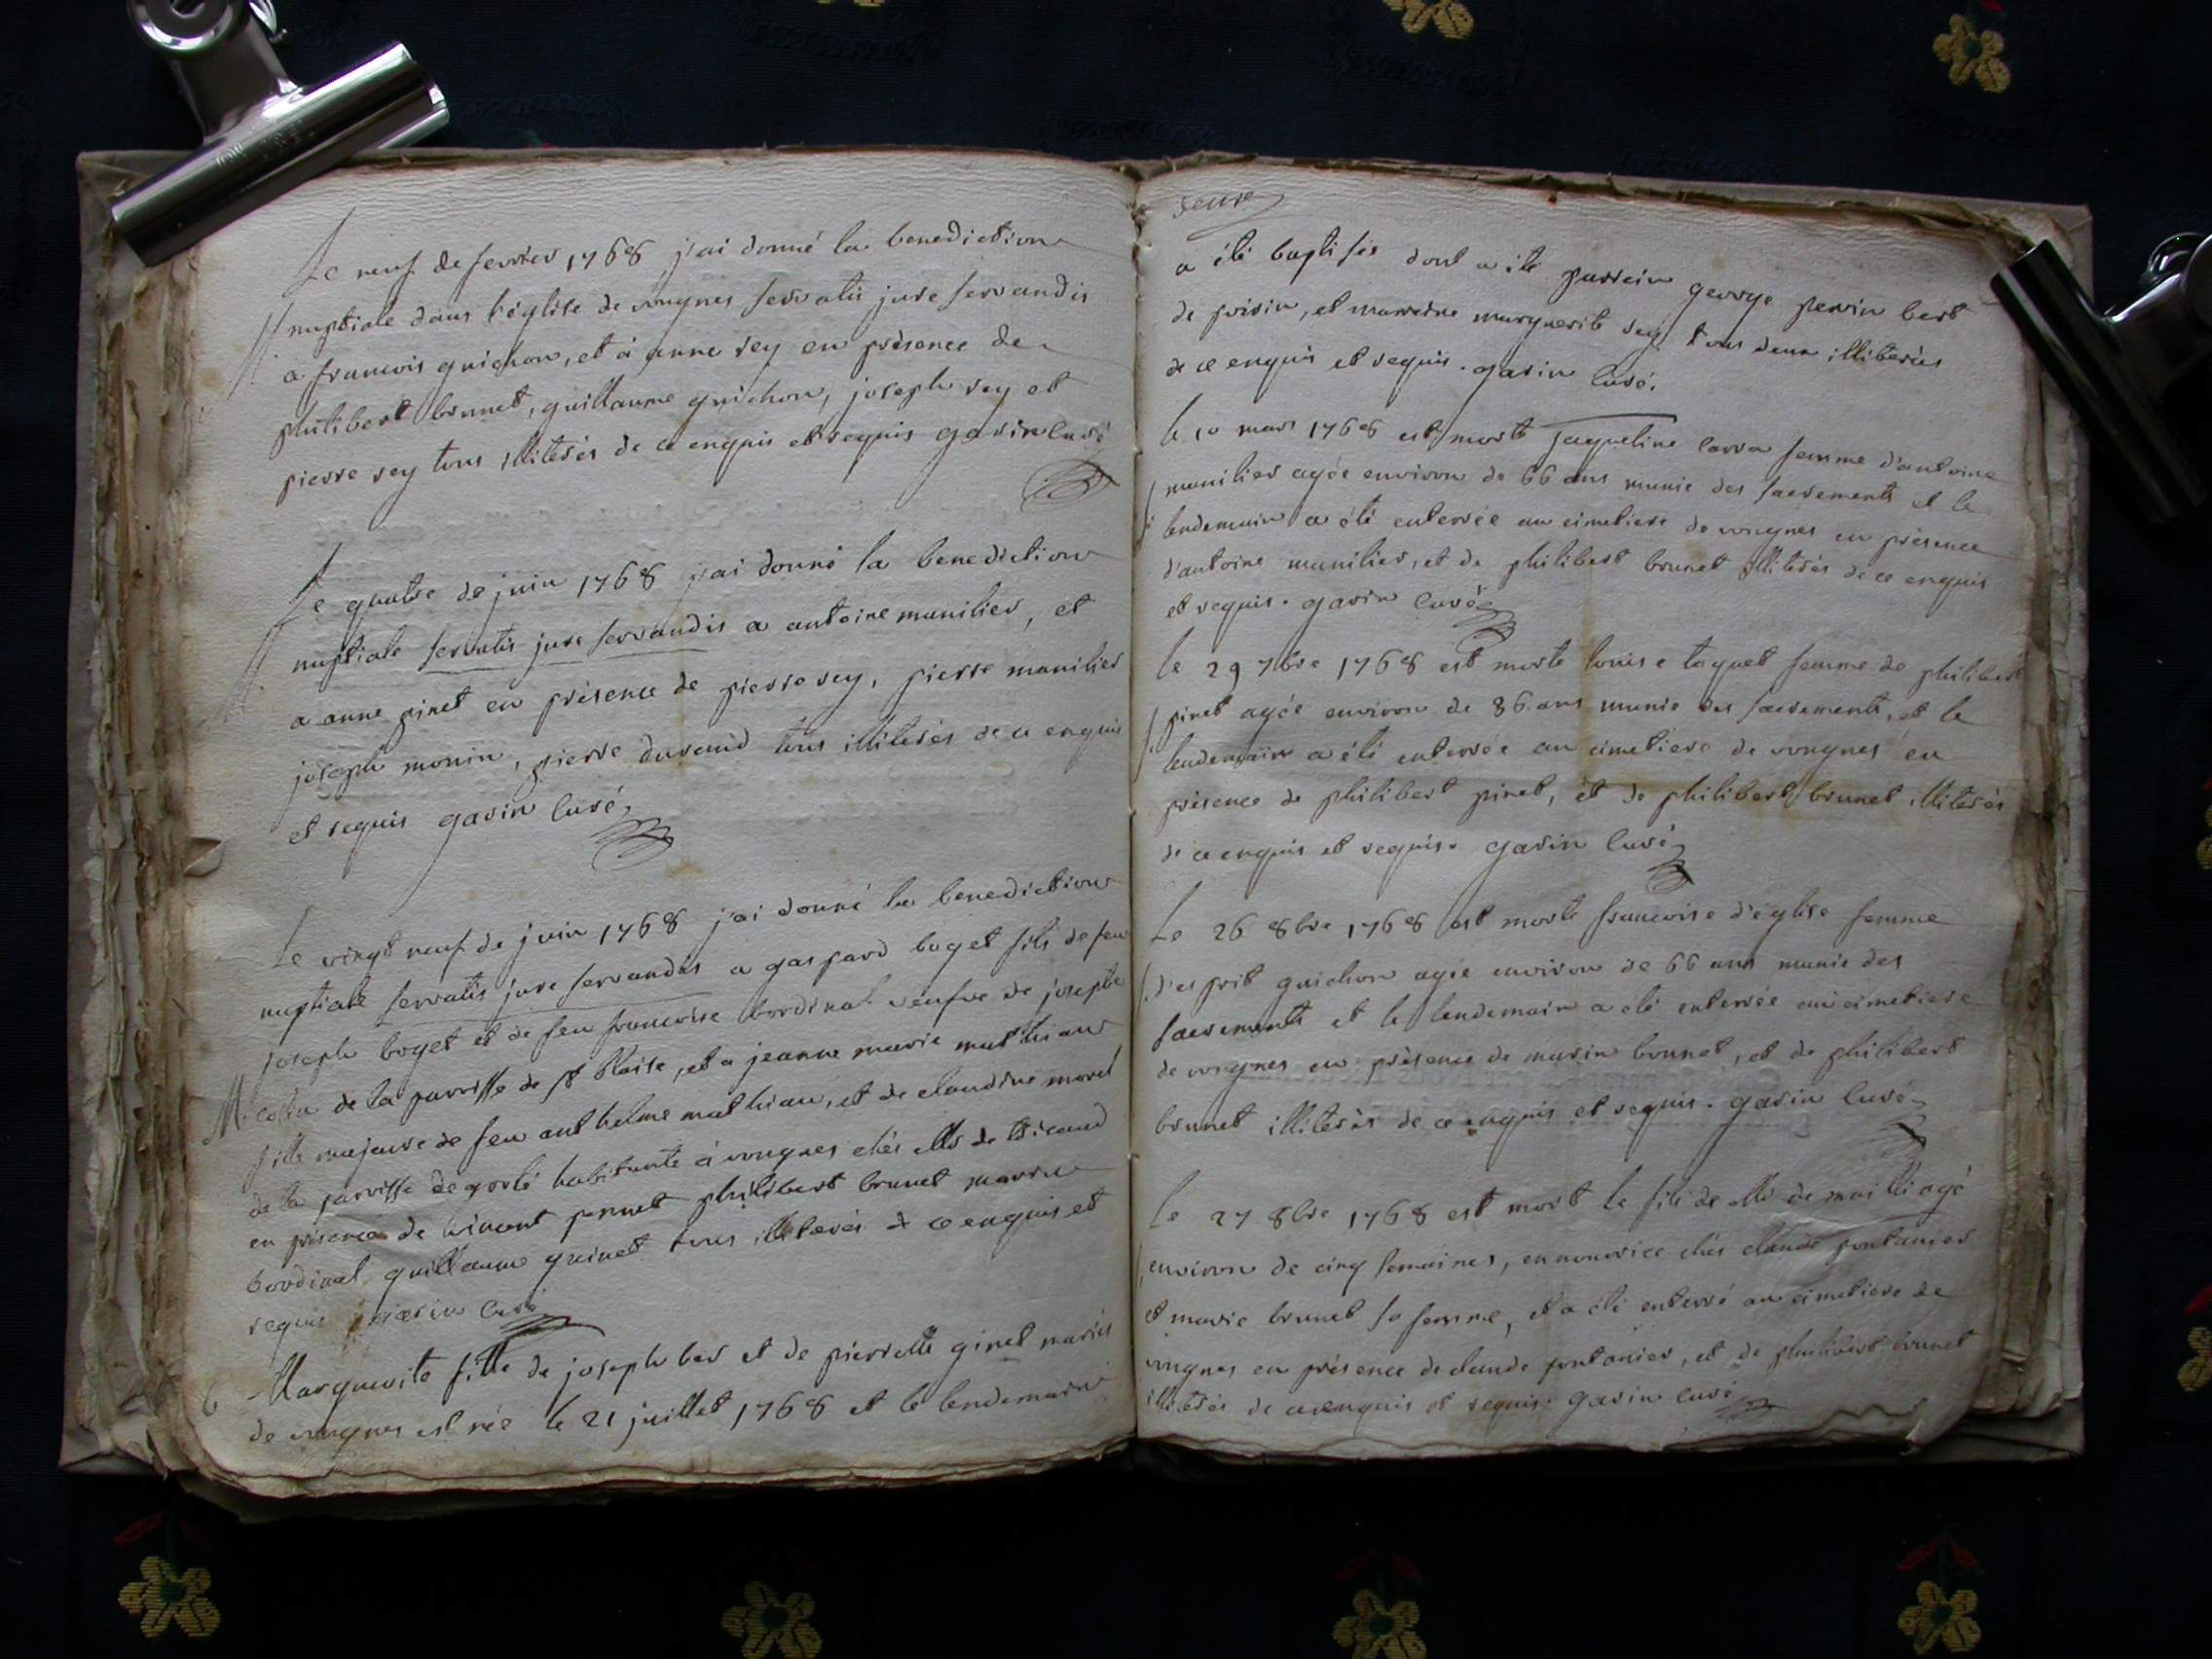 Le neuf de fevrier 1768 j'ai donné la benediction
nuptiale dans l'église de vongnes servatis jure servandis
a francois guichon, et à anne rey en présence de
philibert brunet, guillaume guichon, joseph rey et
pierre rey tous illiterés de ce enquis et requis gavin curé
Le quatre de juin 1768 j'ai donné la benediction
nuptiale servatis jure servandis a antoine munilier, et
a anne pinet en présence de pierre rey, pierre manilier
joseph monin, pierre durand tous illiterés de ce enquis
et requis gavin curé
Le vingt neuf de juin 1768 j'ai donné la benediction
nuptiale servatis jure servandis a gaspard boget fils de feu
joseph boget et de feu francoise bordinat veufve de joseph
de la parroisse de st blaise, et a jeanne marie mathiau
fille majeure de feu anthelme mathiau, et de claudine morel
de la parroisse de habitante à vongnes chés Mr de tricaud
en présence de vincent pernet philibert brunet marin
bordinat guillaume guinet tous illiterés de ce enquis et
requis gavin curé
b Marguerite fille de joseph ber et de pierrette ginet mariés
de vongnes est née le 21 juillet 1768 et le lendemain
a été baptisée dont a été parrein george perin bert
de poisin, et marreine marguerite rey tous deux illiterés
de ce enquis et requis. gavin curé.
le 10 mars 1768 est morte jaqueline carra femme d'antoine
munilier agée environ de 66 ans munie des sacrements et le
lendemain a été enterrée au cimetiere de vongnes en présence
d'antoine munilier, et de philibert brunet illiterés de ce enquis
et requis. gavin curé
le 29 7bre 1768 est morte louise taquet femme de philibert
pinet agée environ de 86 ans munie des sacrements, et le
lendemain a été enterrée au cimetiere de vongnes en
présence de philibert pinet, et de philibert brunet illiterés
de ce enquis et requis. gavin curé
Le 26 8bre 1768 est morte francoise d'église femme
d'esprit guichon agée environ de 66 ans munie des
sacrements et le lendemain a été enterrée au cimetiere
de vongnes en présence de marin brunet, et de philibert
brunet illiterés de ce enquis et requis. gavin curé
le 27 8bre 1768 est mort le fils de Mr de mailli agé
environ de cinq semaines, en nourrice chés claude pontanier
et marie brunet sa femme, et a été enterré au cimetiere de
vongnes en présence de claude pontanier, et de philibert brunet
illiterés de ce enquis et requis. gavin curé